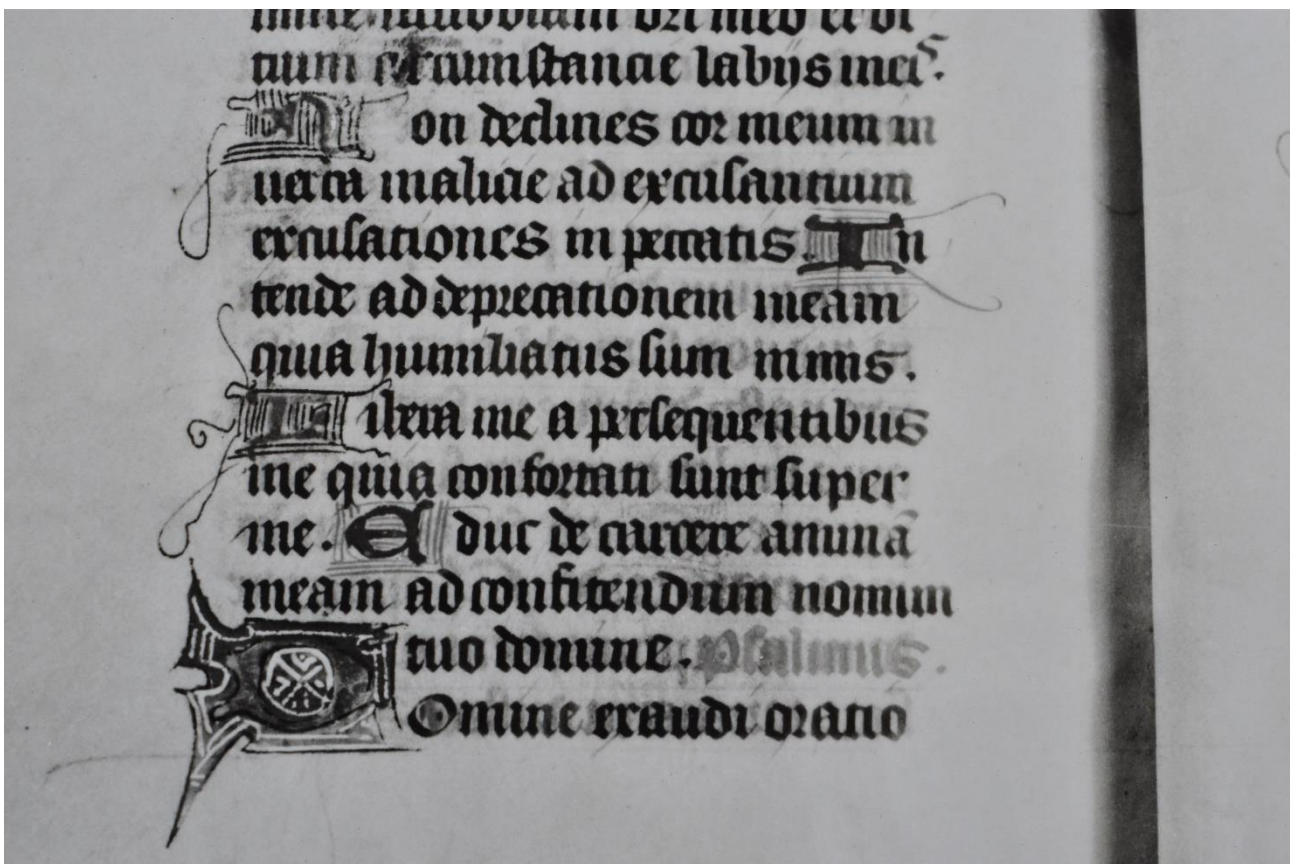 ori meo et
tium circumstancie labijs meis.
Non declines cor meum in
uerba malicie ad excusantium
excusationes in peccatis. In
tende ad deprecationem meam
quia humiliatus sum nimis.
Libera me a persequentibus
me quia confortati sunt super
me. Educ de carcere animā
meam ad confitendum nomini
tuo domine. Psalmus.
DOmine exaudi oratio